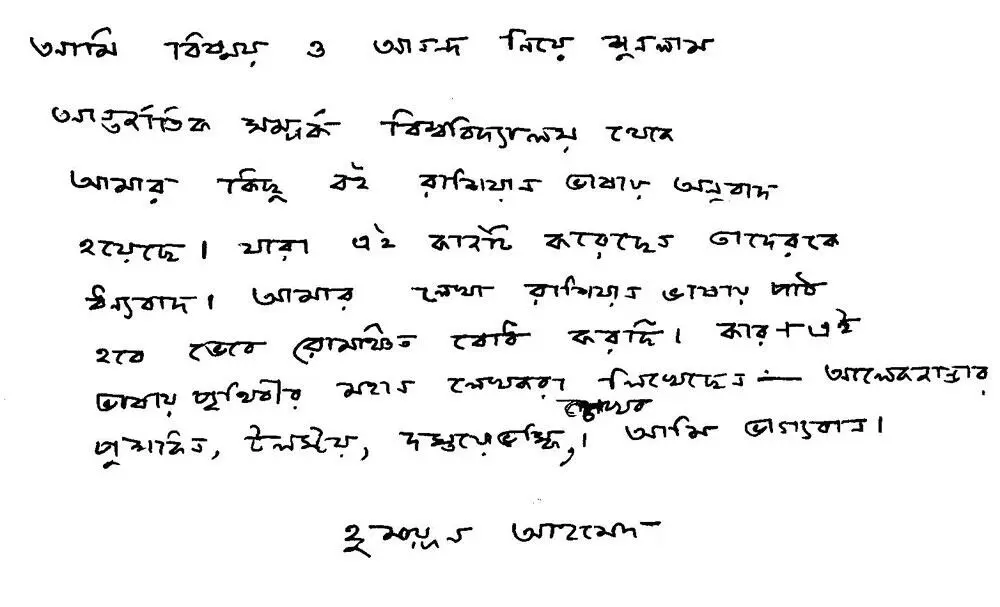 আমি বিস্ময় ও আনন্দ নিয়ে শুনলাম
আন্তর্জাতিক সম্পর্ক বিশ্ববিদ্যালয় থেকে
আমার কিছু বই রাশিয়ান ভাষায় অনুবাদ
হয়েছে। যারা এই কাজটি করেছেন তাদেরকে
ধন্যবাদ। আমার লেখা রাশিয়ান ভাষায় পাঠ
হবে ভেবে রোমাঞ্চিত বোধ করছি। কারণ এই
ভাষায় পৃথিবীর মহান লেখকরা লিখেছেন — আলেকজান্ডার
পুশকিন, টলস্টয়, দস্তয়েভস্কি, শেখব। আমি ভাগ্যবান।
হুমায়ূন আহমেদ